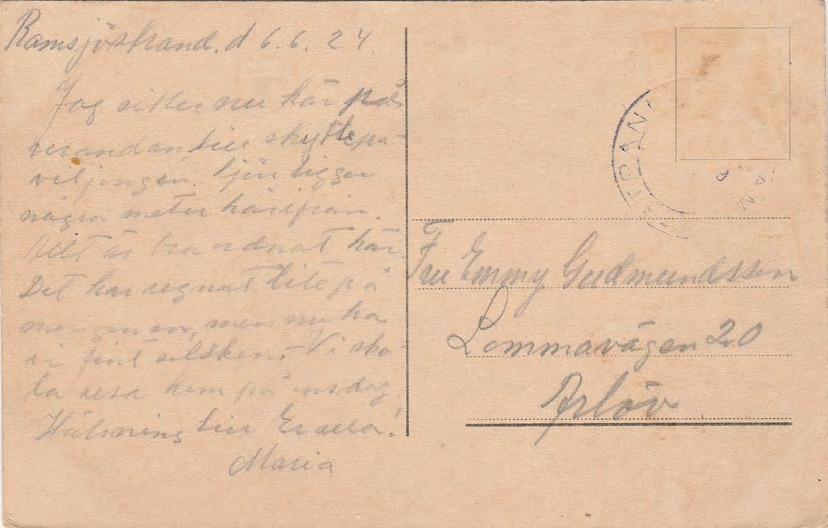 Ramsjöstrand. d 6.6.24.
Jag sitter nu här på
verandan till skyttepa-
viljongen. Sjön ligger
några meter härifrån.
Allt är bra ordnat här.
Det har regnat lite på
morgonen, men nu ha
vi fint solsken. Vi sko-
la resa hem på onsdag.
Hälsning till Er alla!
Maria
TRAN
Fru Emmy Gudmundsson
Lommavägen 20
Arlöv